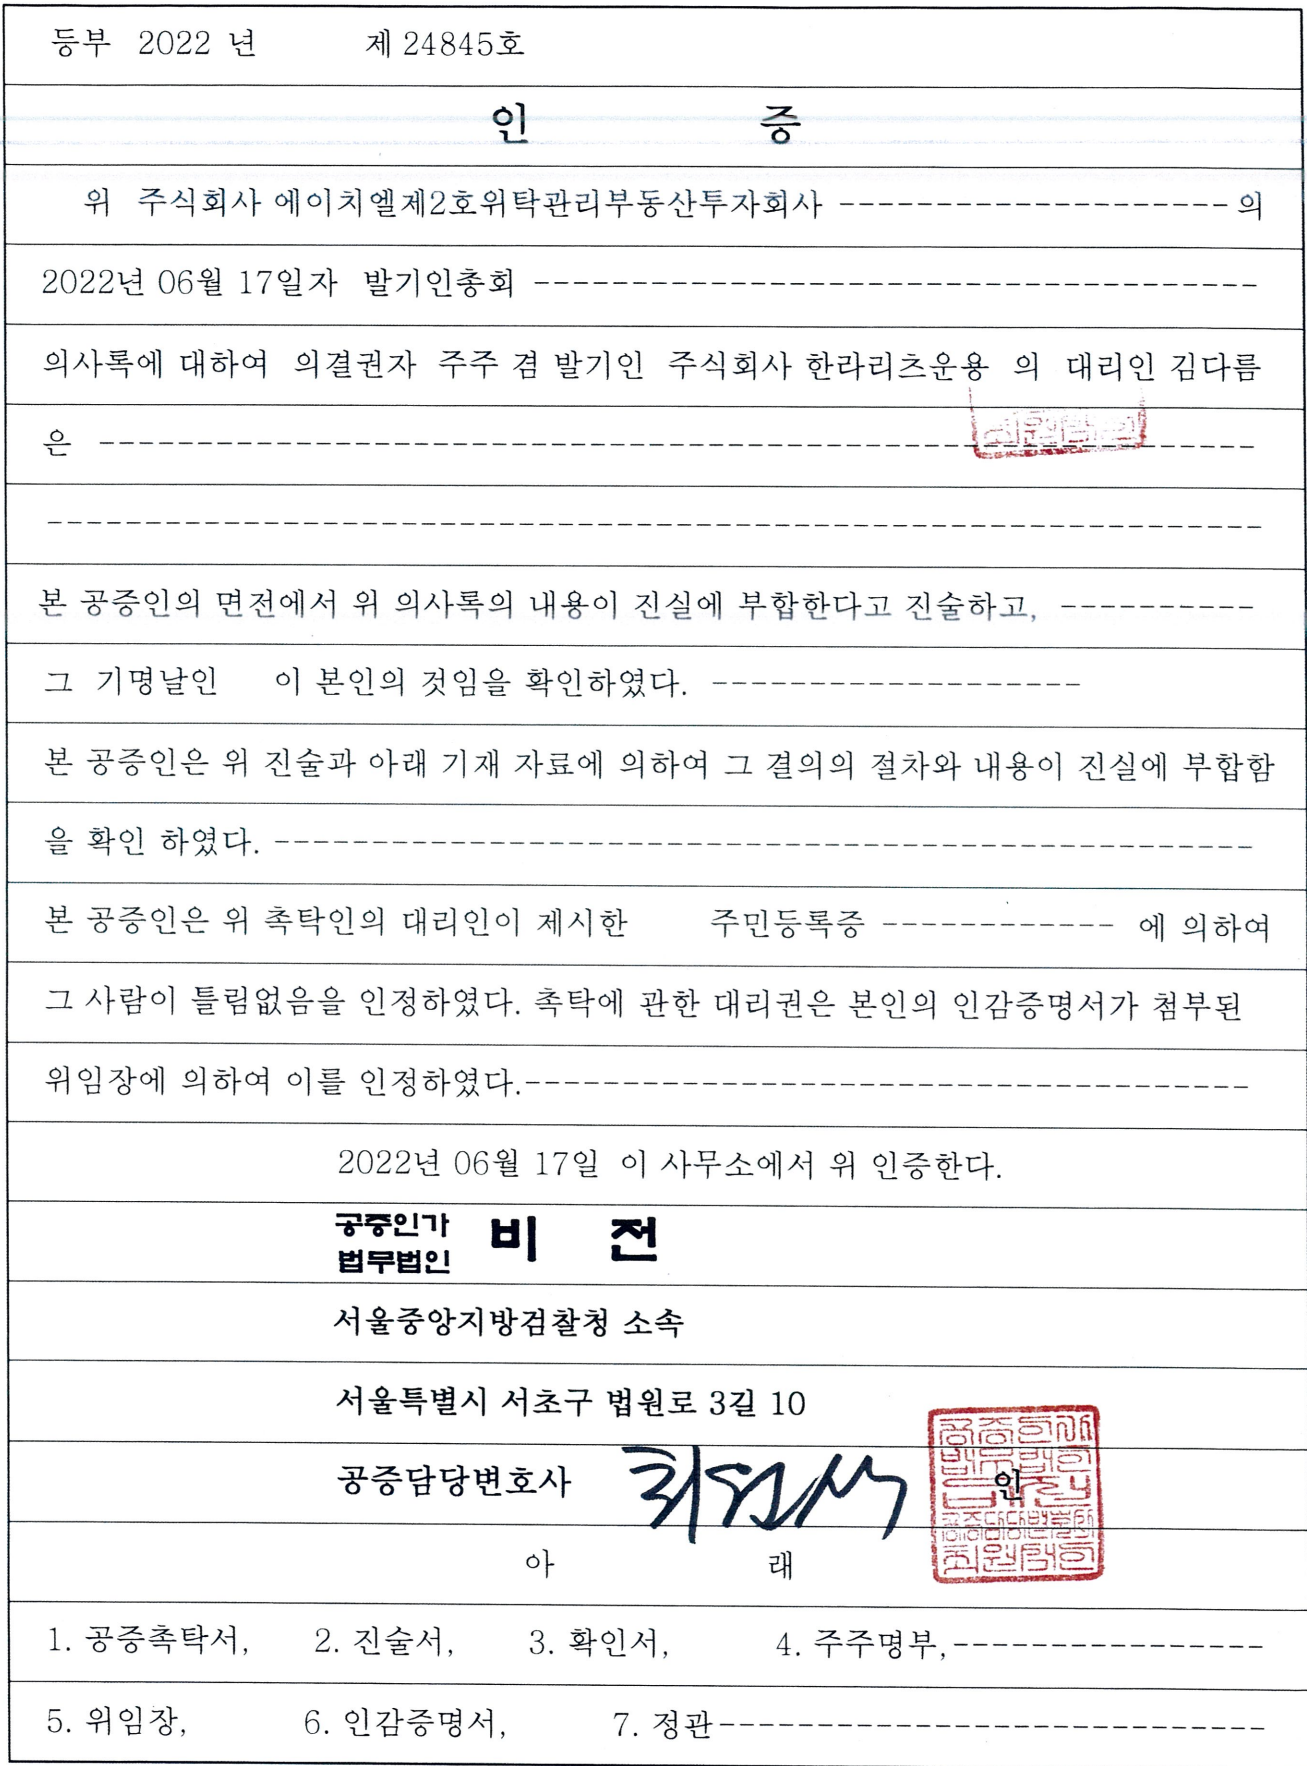 등부 2022 년 제 24845호
인 증
위 주식회사 에이치엘제2호위탁관리부동산투자회사 -------------------- 의
2022년 06월 17일자 발기인총회 -------------------------------------
의사록에 대하여 의결권자 주주 겸 발기인 주식회사 한라리츠운용 의 대리인 김다름
은 -----------------------------------------------------------
--------------------------------------------------------------
본 공증인의 면전에서 위 의사록의 내용이 진실에 부합한다고 진술하고, ----------
그 기명날인 이 본인의 것임을 확인하였다. -------------------
본 공증인은 위 진술과 아래 기재 자료에 의하여 그 결의의 절차와 내용이 진실에 부합함
을 확인 하였다. --------------------------------------------------
본 공증인은 위 촉탁인의 대리인이 제시한 주민등록증 ------------ 에 의하여
그 사람이 틀림없음을 인정하였다. 촉탁에 관한 대리권은 본인의 인감증명서가 첨부된
위임장에 의하여 이를 인정하였다.-------------------------------------
2022년 06월 17일 이 사무소에서 위 인증한다.
공증인가 법무법인 비 전
서울중앙지방검찰청 소속
서울특별시 서초구 법원로 3길 10
공증담당변호사 인
아 래
1. 공증촉탁서, 2. 진술서, 3. 확인서, 4. 주주명부,----------------
5. 위임장, 6. 인감증명서, 7. 정관----------------------------